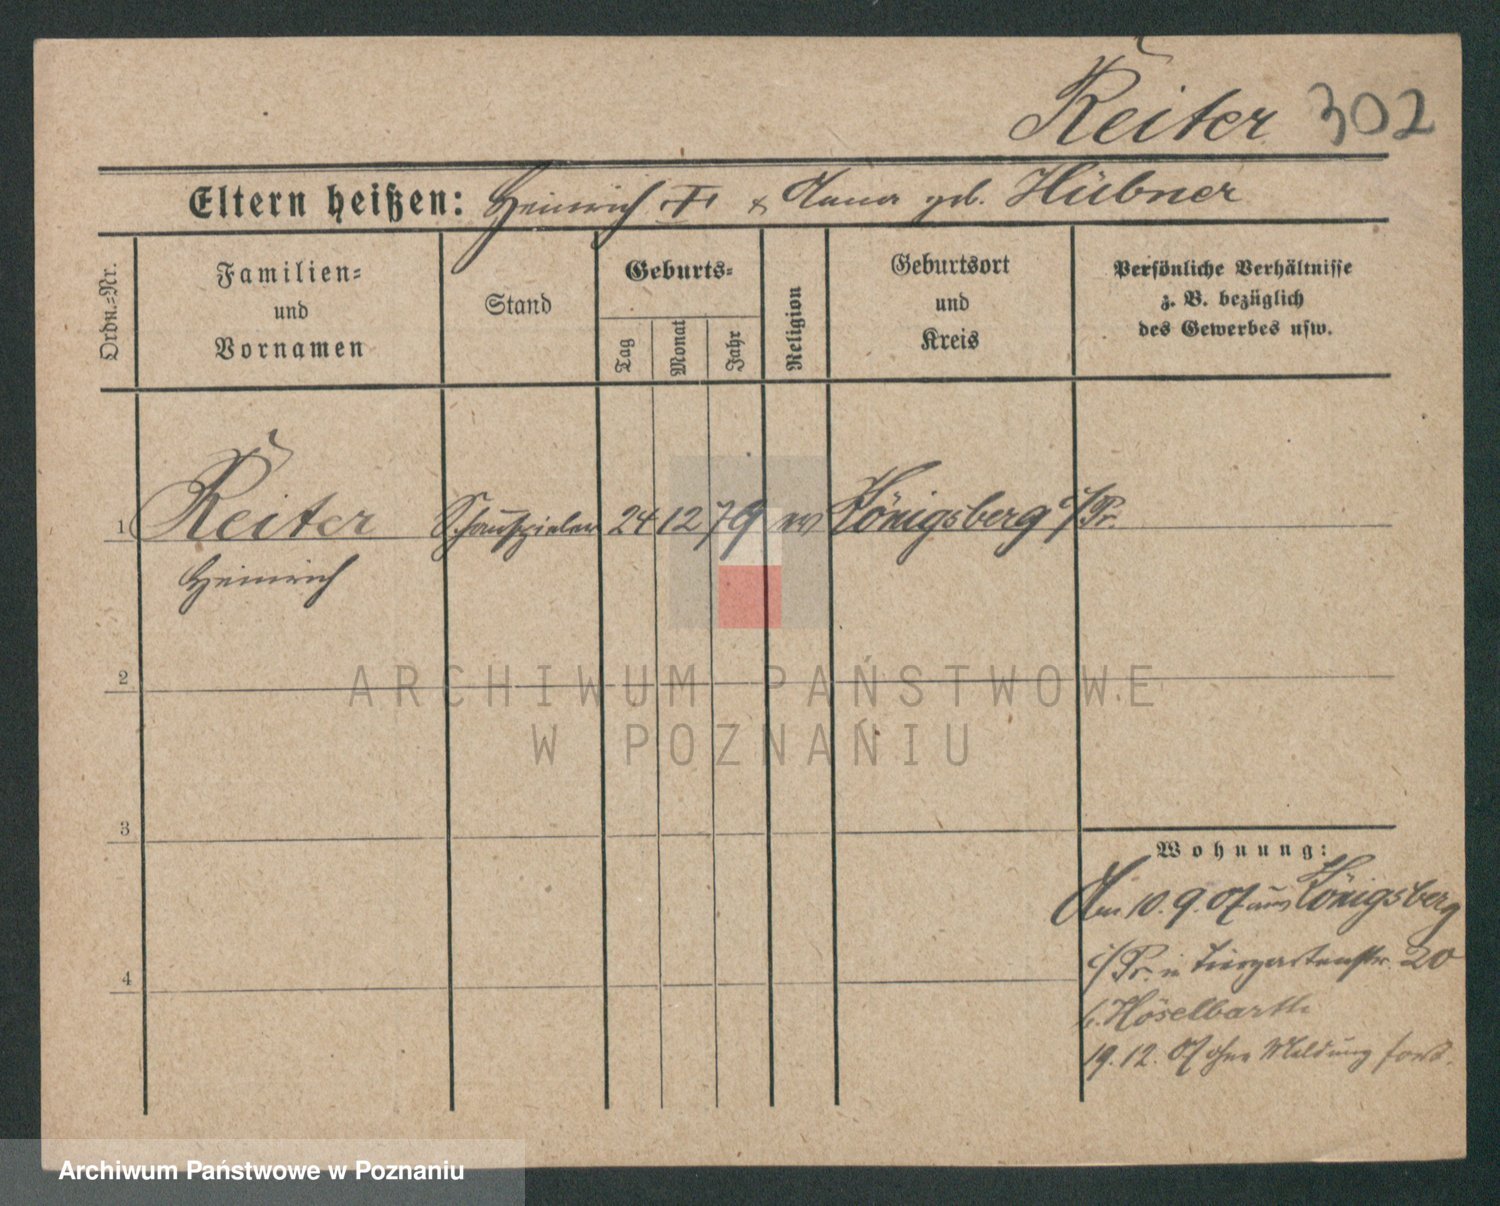 Reiter 302
Eltern heißen: Heinrich u. Anna geb. Hübner
Ordn.-Nr.
Familien-
und
Vornamen
Stand
Geburts-
Tag
Monat
Jahr
Religion
Geburtsort
und
Kreis
Persönliche Verhältnisse
z. B. bezüglich
des Gewerbes usw.
1 Reiter Schauspieler 24 12 79 ev Königsberg i/Pr.
Heinrich
2
3
4
Wohnung:
Am 10. 9. 07 aus Königsberg
i/Pr. in Tiergartenstr. 20
b. Höselbarth
19. 12. 07 ohne Meldung fort.
ARCHIWUM PAŃSTWOWE
W POZNANIU
Archiwum Państwowe w Poznaniu